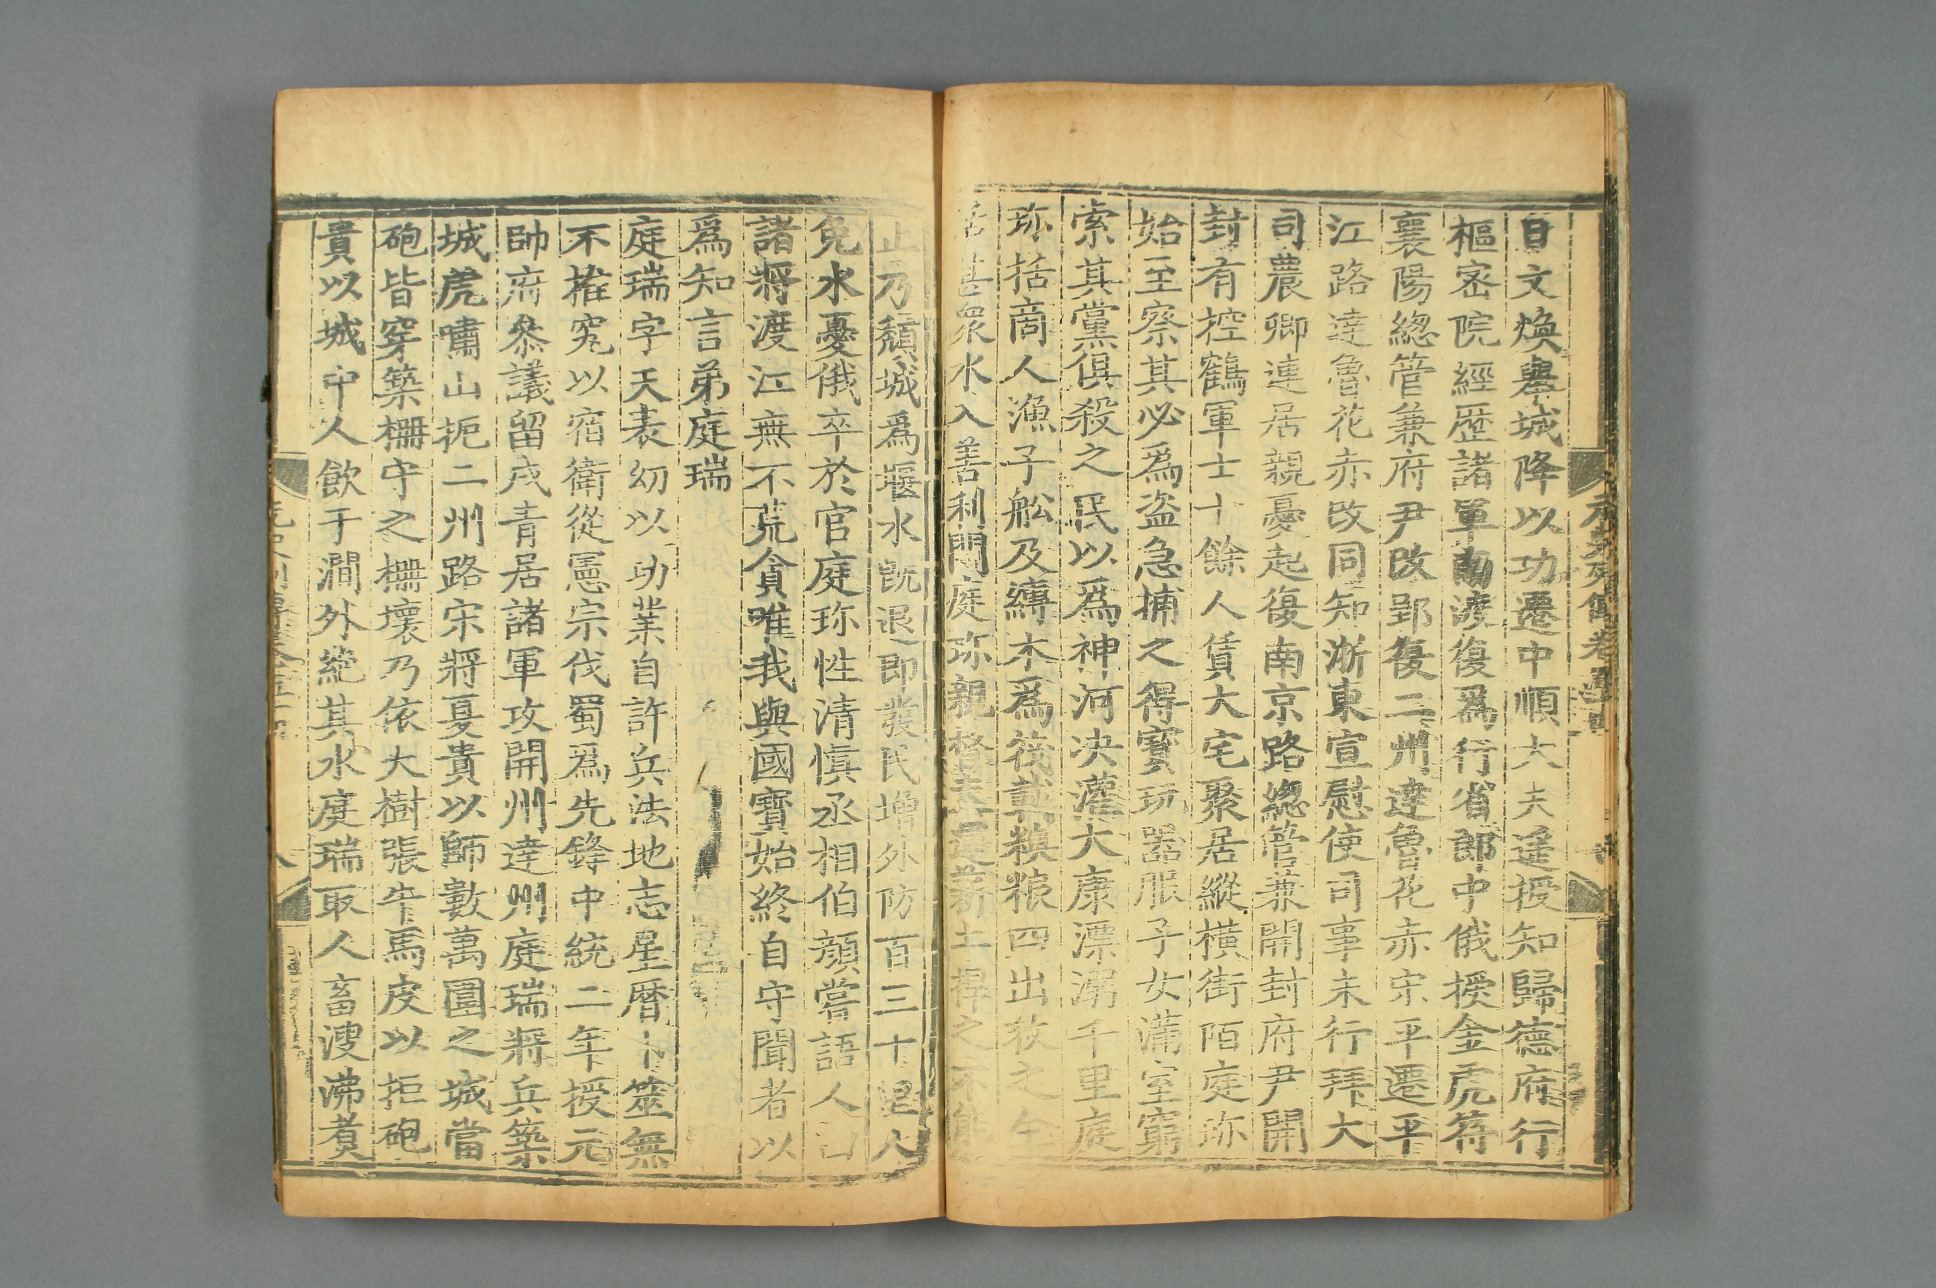 日文煥舉城降以功遷中順大夫遥授知歸德府行
樞宻院經歷諸軍南渡復爲行省郎中俄授金虎符
襄陽緫管兼府尹改郢復二州達魯花赤宋平遷平
江路達魯花赤改同知浙東宣慰使司事未行拜大
司農卿連居親憂起復南京路緫管兼開封府尹開
封有控鶴軍士十餘人賃大宅聚居縱横街陌庭珎
始至察其必爲盗急捕之得寳玩器服子女滿室窮
索其黨俱殺之民以爲神河决灌大康漂溺千里庭
珎括商人漁子舩及縳木爲筏載糗粮四出救之全
活甚衆水入善利門庭珎親督夫運薪土捍之不能
止乃頽城爲堰水旣退即發民增外防百三十里人
免水憂俄卒於官庭珎性清愼丞相伯顔嘗語人曰
諸將渡江無不荒貪唯我與國寳始終自守聞者以
爲知言弟庭瑞
庭瑞字天表幼以功業自許兵法地志星曆卜筮無
不推究以宿衛從憲宗伐蜀爲先鋒中統二年授元
帥府叅議留戍青居諸軍攻開州達州庭瑞將兵築
城虎嘯山扼二州路宋將夏貴以師數萬圍之城當
砲皆穿築栅守之栅壞乃依大樹張牛馬皮以拒砲
貴以城中人飮于澗外絶其水庭瑞取人畜溲沸煮
元史列傳卷
八